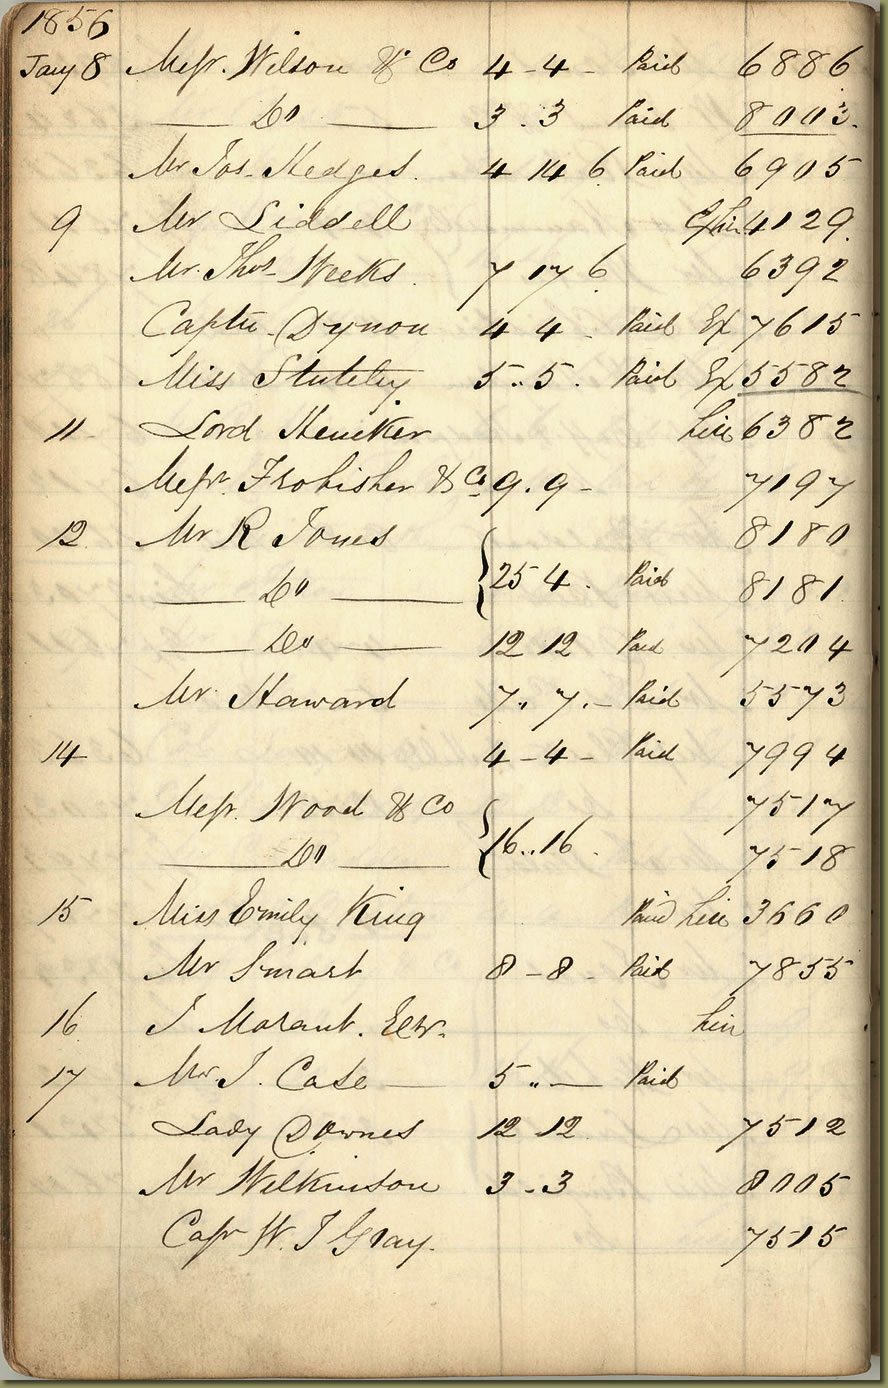 1856
Jany 8 Messr. Wilson & Co 4 - 4 - Paid 6886
Do 3 . 3 Paid 8003.
Mr Jos. Hedges. 4 14 6 Paid 6905
9 Mr Liddell 4129.
Mr. Thos. Weeks. 7 17 6 6392
Captn. Dynon 4 4 - Paid Ex 7615
Miss Stuteley 5 .. 5 . Paid Ex 5582
11 Lord Henicker 6382
Messr. Frobisher & Co 9 . 9 - 7197
12. Mr R Jones 8180
Do { 25 4 . Paid 8181.
Do 12 12 Paid 7204
Mr. Haward 7 .. 7 . - Paid 5573
14 4 - 4 - Paid 7994
Messr. Wood & Co 7517
Do { 16 .. 16 . 7518
15 Miss Emily King Paid 3660
Mr Smart 8 - 8 - Paid 7855
16 J Morant.
17 J. Case — 5 .. — Paid
Lady Downes 12 12. 7512
Mr Wilkinson 3 - 3 8005
Capt W. J Gray. 7515